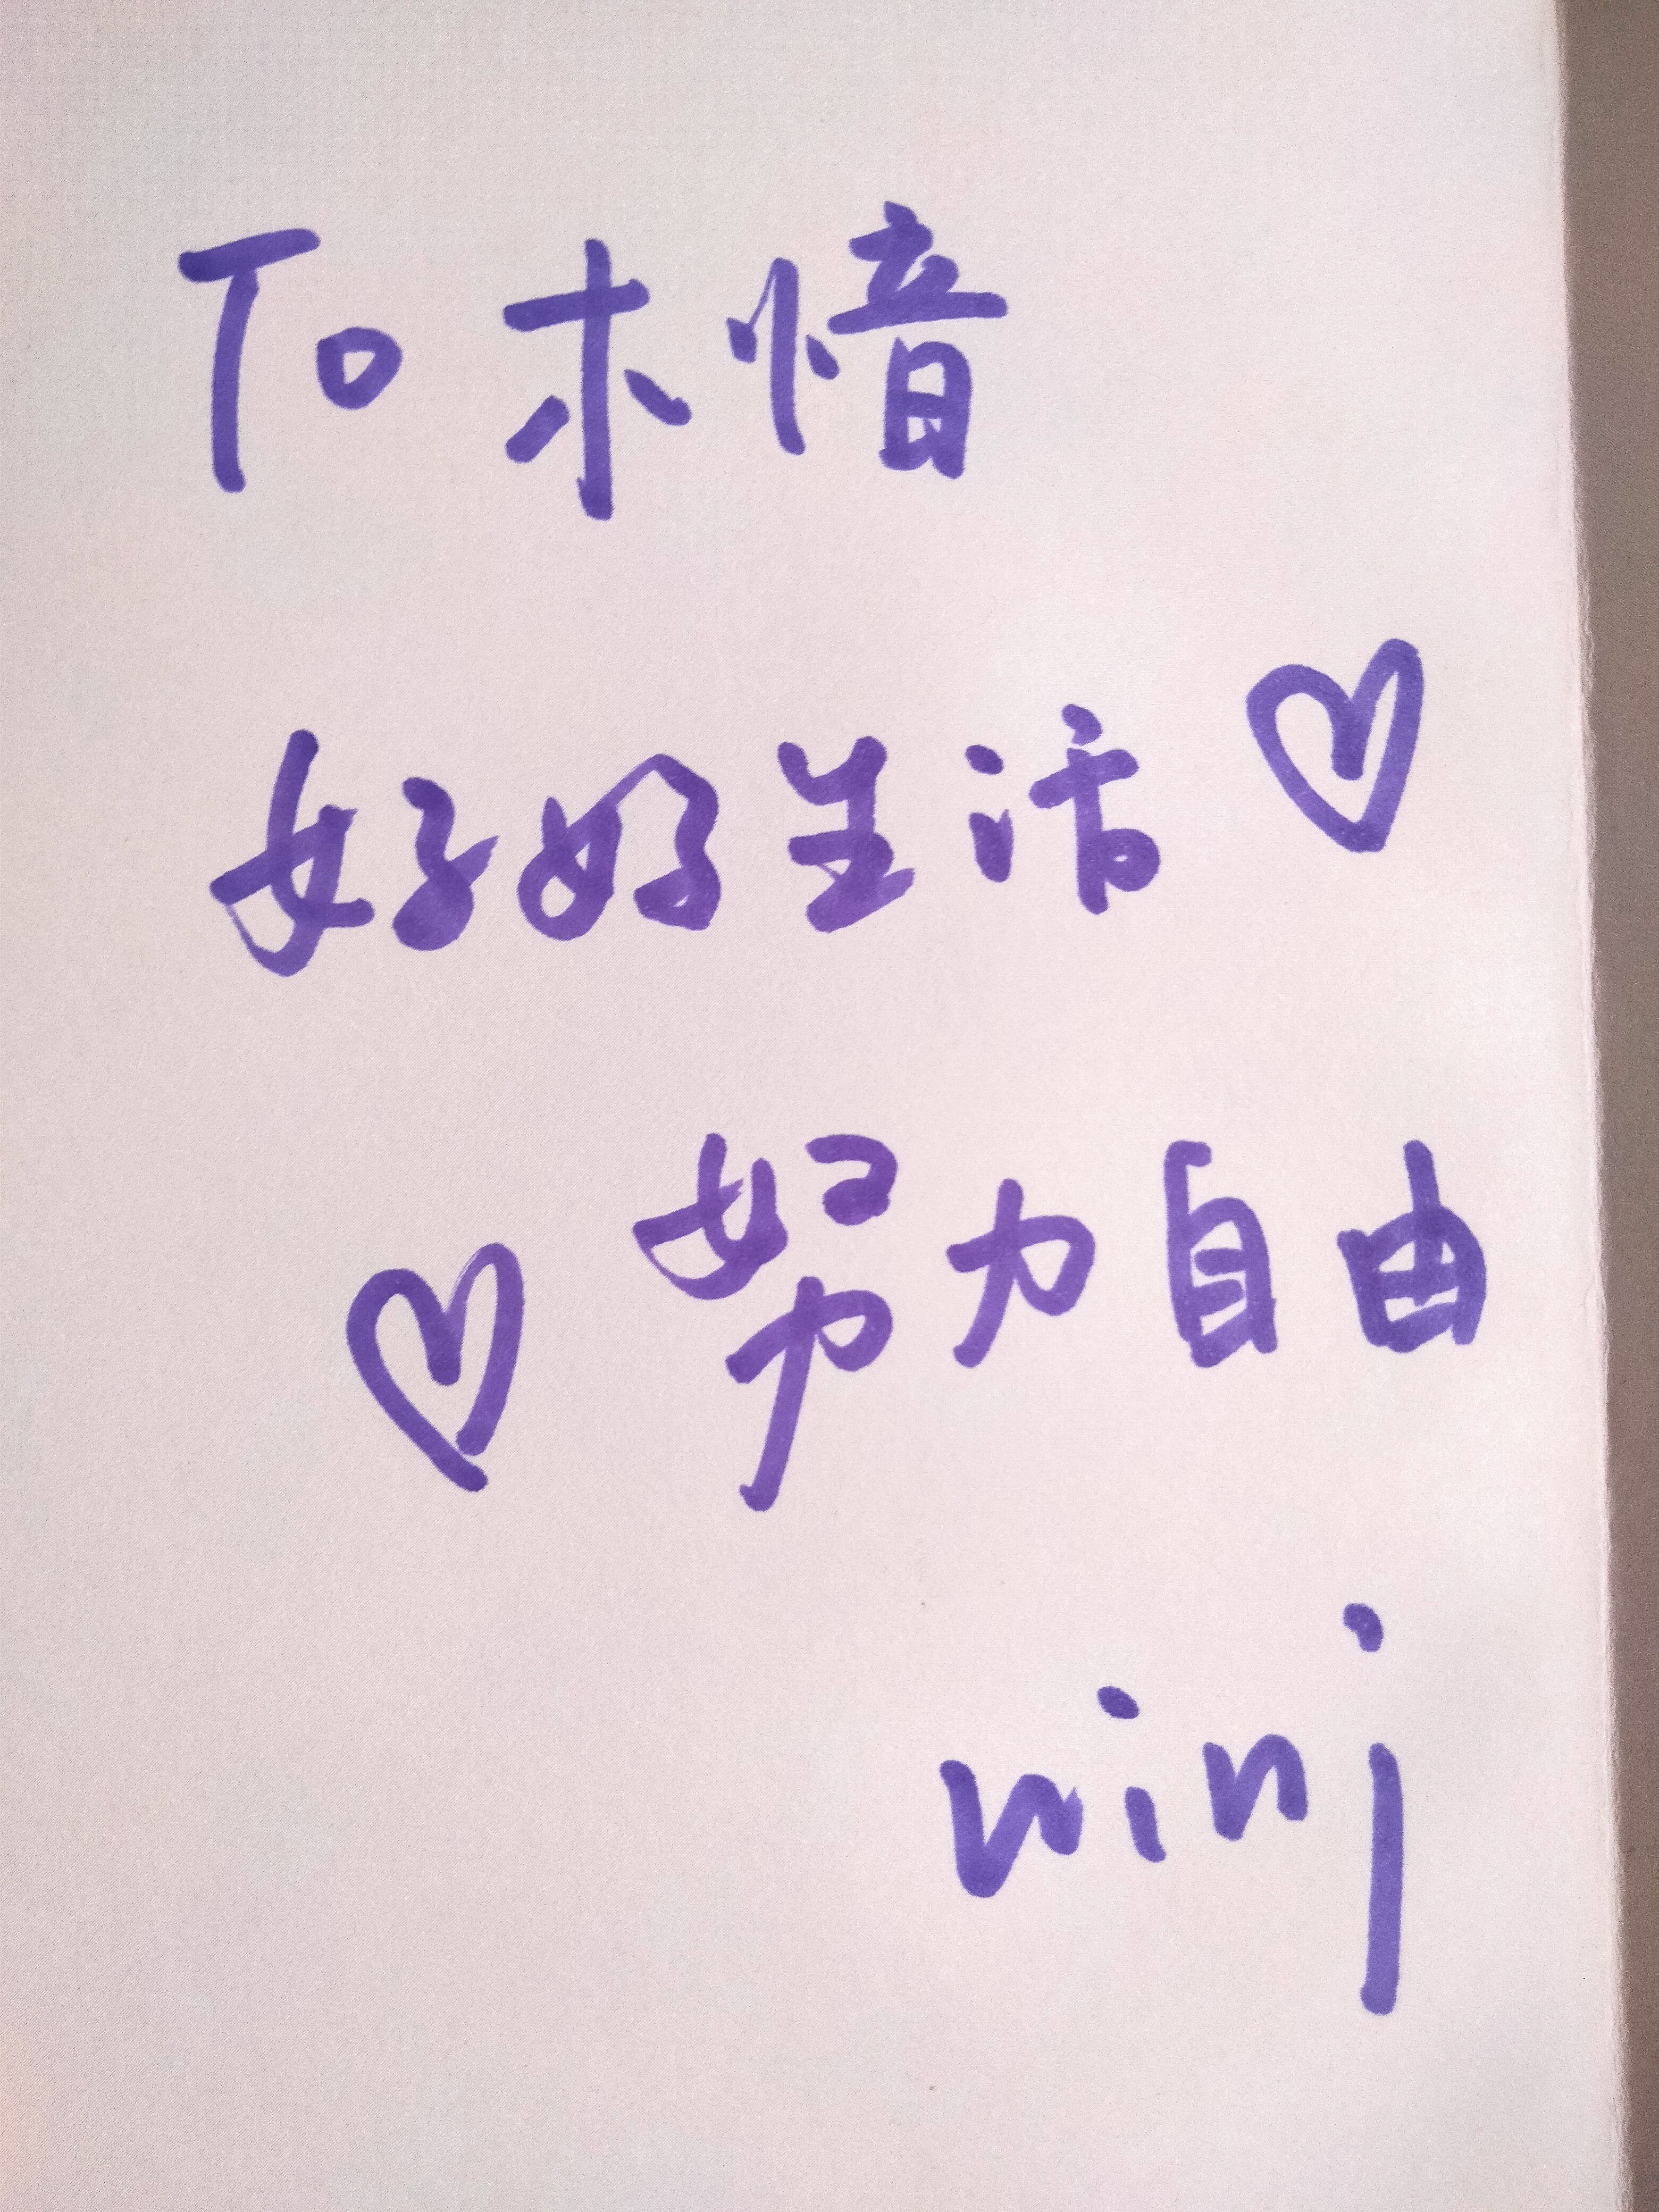 To 木愔
好好生活
努力自由
nini